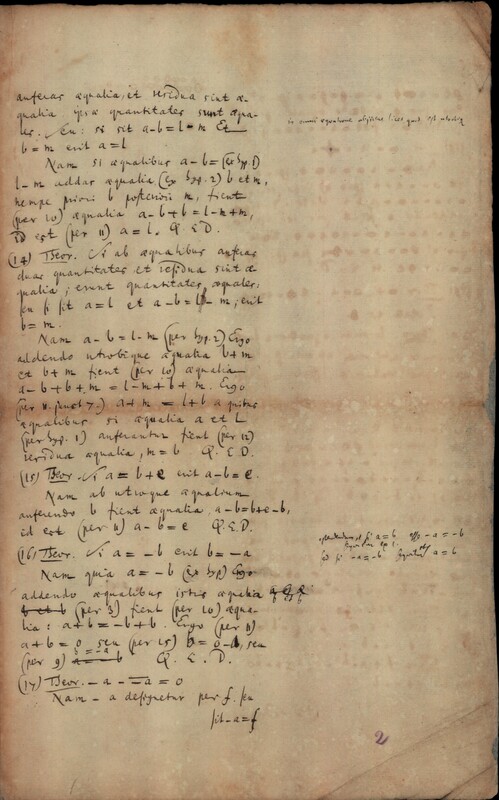 auferas æqualia, et residua sint æ-
qualia ipsæ quantitates sunt æqua-
les. seu: si sit a-b=l-m Et
b=m erit a=l
Nam si æqualibus a-b=(ex hyp. 1)
l-m addas æqualia (ex hyp. 2) b et m,
nempe priori b posteriori m, fient
(per 10) æqualia a-b+b=l-m+m,
id est (per 11) a=l. Q. E. D.
(14) Theor. Si ab æqualibus auferas
duas quantitates et residua sint æ-
qualia; erunt quantitates æquales,
seu si sit a=l et a-b=l-m; erit
b=m.
Nam a-b=l-m (per hyp. 2) Ergo
addendo utrobique æqualia b+m
et b+m fient (per 10) æqualia
a-b+b+m=l-m+b+m. Ergo
(per 11. junct. 7.) a+m=l+b a quibus
æqualibus si æqualia a et l
(per hyp. 1) auferantur fient (per 12)
residua æqualia, m=b Q. E. D.
(15) Theor. Si a=b+c erit a-b=c.
Nam ab utroque æqualium
auferendo b fient æqualia, a-b=b+c-b,
id est (per 11) a-b=c Q. E. D.
(16) Theor. Si a=-b erit b=-a
Nam quia a=-b (ex hyp) Ergo
addendo æqualibus istis æqualia
b et b (per 3) fient (per 10) æqua-
lia: a+b=-b+b. Ergo (per 11)
a+b=0 seu (per 15) b=0-a, seu
(per 9) b=-a Q. E. D.
(17) Theor. -a - -a=0
Nam -a designetur per f. seu
sit -a=f
in omni æquatione abjicere licet quod est
ostendendum et si a=b, esse -a=-b
et si -a=-b sequitur a=b
2